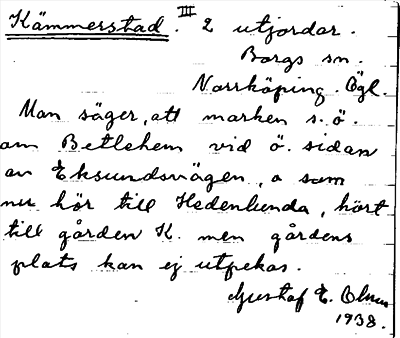 Kämmerstad. III 2 utjordar.
Borgs sn.
Norrköping. Ögl.
Man säger, att marken s.ö.
om Betlehem vid ö. sidan
av Eksundsvägen, o som
nu hör till Hedenlunda, hört
till gården K. men gårdens
plats kan ej utpekas.
Gustaf E. Olsson
1938.